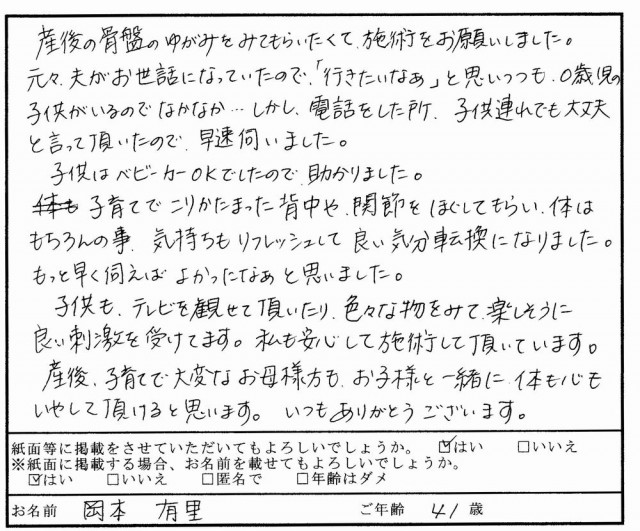 産後の骨盤のゆがみをみてもらいたくて、施術をお願いしました。
元々、夫がお世話になっていたので、「行きたいなぁ」と思いつつも、0歳児の
子供がいるのでなかなか…しかし、電話をした所、子供連れでも大丈夫
と言って頂いたので、早速伺いました。
子供はベビーカーOKでしたので、助かりました。
体も子育てでこりかたまった背中や、関節をほぐしてもらい、体は
もちろんの事、気持ちもリフレッシュして良い気分転換になりました。
もっと早く伺えばよかったなぁと思いました。
子供も、テレビを観せて頂いたり、色々な物をみて、楽しそうに
良い刺激を受けてます。私も安心して施術して頂いています。
産後、子育てで大変なお母様方も、お子様と一緒に、体も心も
いやして頂けると思います。いつもありがとうございます。
紙面等に掲載をさせていただいてもよろしいでしょうか。 ☑はい □いいえ
※紙面に掲載する場合、お名前を載せてもよろしいでしょうか。
☑はい □いいえ □匿名で □年齢はダメ
お名前 岡本 有里 ご年齢 41 歳